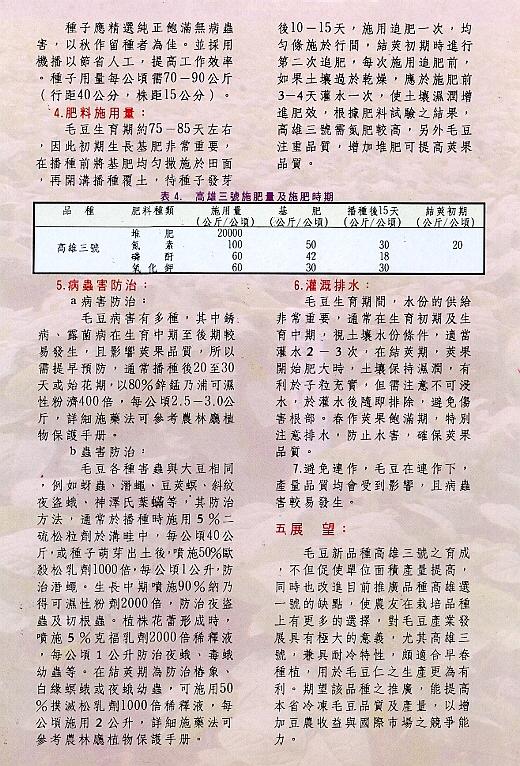 種子應精選純正飽滿無病蟲
害，以秋作留種者為佳。並採用
機播以節省人工，提高工作效率
。種子用量每公頃需70－90公斤
（行距40公分，株距15公分）。
4.肥料施用量：
毛豆生育期約75－85天左右
，因此初期生長基肥非常重要，
在播種前將基肥均勻撒施於田面
，再開溝播種覆土，待種子發芽
後10－15天，施用追肥一次，均
勻條施於行間，結莢初期時進行
第二次追肥，每次施用追肥前，
如果土壤過於乾燥，應於施肥前
3－4天灌水一次，使土壤濕潤增
進肥效，根據肥料試驗之結果，
高雄三號需氮肥較高，另外毛豆
注重品質，增加堆肥可提高莢果
品質。
表4. 高雄三號施肥量及施肥時期
品種 肥料種類 施用量 基肥 播種後15天 結莢初期
(公斤/公頃) (公斤/公頃) (公斤/公頃) (公斤/公頃)
堆肥 20000
高雄三號 氮素 100 50 30 20
磷酐 60 42 18
氧化鉀 60 30 30
5.病蟲害防治：
a病害防治：
毛豆病害有多種，其中銹
病、露菌病在生育中期至後期較
易發生，且影響莢果品質，所以
需提早預防，通常播種後20至30
天或始花期，以80％鋅錳乃浦可濕
性粉濟400倍，每公頃2.5－3.0公
斤，詳細施藥法可參考農林廳植
物保護手册。
b蟲害防治：
毛豆各種害蟲與大豆相同
，例如蚜蟲、潛蠅、豆莢螟、斜紋
夜盜蛾、神澤氏葉蟎等，其防治
方法，通常於播種時施用5％二
硫松粒劑於溝畦中，每公頃40公
斤，或種子萌芽出土後，噴施50％歐
殺松乳劑1000倍，每公頃1公升，防
治潛蠅。生長中期噴施90％納乃
得可濕性粉劑2000倍，防治夜盜
蟲及切根蟲。植株花蕾形成時，
噴施5％克福乳劑2000倍稀釋液
，每公頃1公升防治夜蛾、毒蛾
幼蟲等。在結莢期為防治椿象、
白緣螟蛾或夜蛾幼蟲，可施用50
％撲滅松乳劑1000倍稀釋液，每
公頃施用2公升，詳細施藥法可
參考農林廳植物保護手册。
6.灌溉排水：
毛豆生育期間，水份的供給
非常重要，通常在生育初期及生
育中期，視土壤水份條件，適當
灌水2－3次，在結莢期，莢果
開始肥大時，土壤保持濕潤，有
利於子粒充實，但需注意不可浸
水，於灌水後隨即排除，避免傷
害根部。春作莢果飽滿期，特別
注意排水，防止水害，確保莢果
品質。
7.避免連作，毛豆在連作下，
產量品質均會受到影響，且病蟲
害較易發生。
五展望：
毛豆新品種高雄三號之育成
，不但促使單位面積產量提高，
同時也改進目前推廣品種高雄選
一號的缺點，使農友在栽培品種
上有更多的選擇，對毛豆產業發
展具有極大的意義，尤其高雄三
號，兼具耐冷特性，頗適合早春
種植，用於毛豆仁之生產更為有
利。期望該品種之推廣，能提高
本省冷凍毛豆品質及產量，以增
加豆農收益與國際市場之競爭能
力。